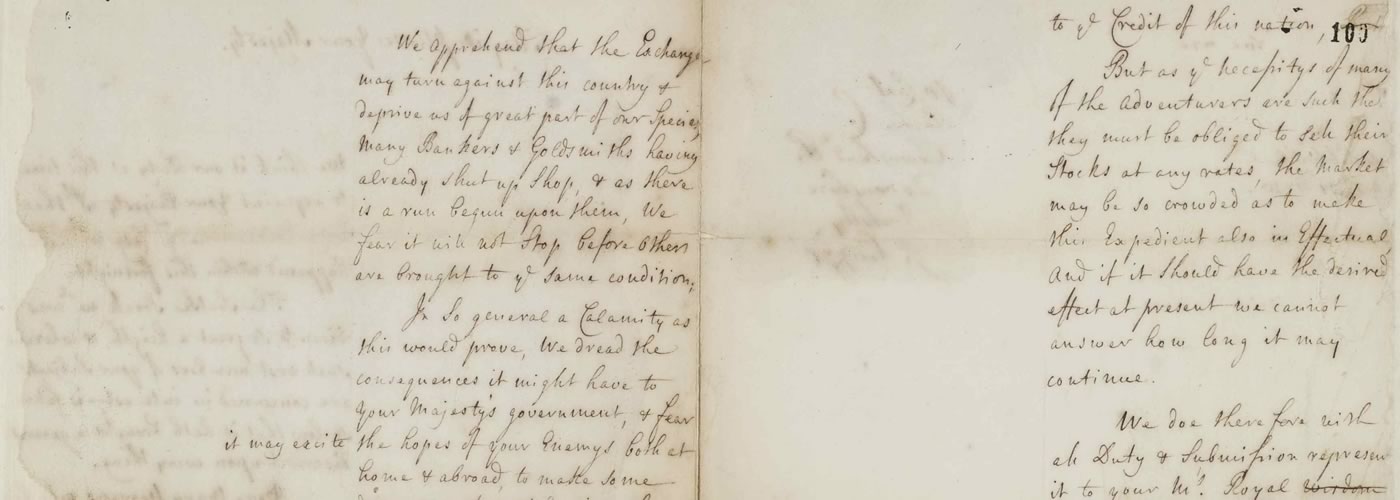 We apprehend that the Exchange
may turn against this country &
deprive us of great part of our Specie,
many Bankers & Goldsmiths having
already shut up Shop, & as there
is a run begun upon them, We
fear it will not Stop before others
are brought to yᵉ same condition,
In So general a Calamity as
this would prove, We dread the
consequences it might have to
Your Majesty's government, & fear
it may excite the hopes of your Enemys both at
home & abroad, to make some
to yᵉ Credit of this nation,
103
But as yᵉ necessitys of many
of the adventurers are such that
they must be obliged to sell their
Stocks at any rates, the Market
may be so crowded as to make
this Expedient also in Effectual
And if it should have the desired
effect at present we cannot
answer how long it may
continue.
We doe there fore with
all Duty & Submission represent
it to your Mᵗˢ. Royal wisdom